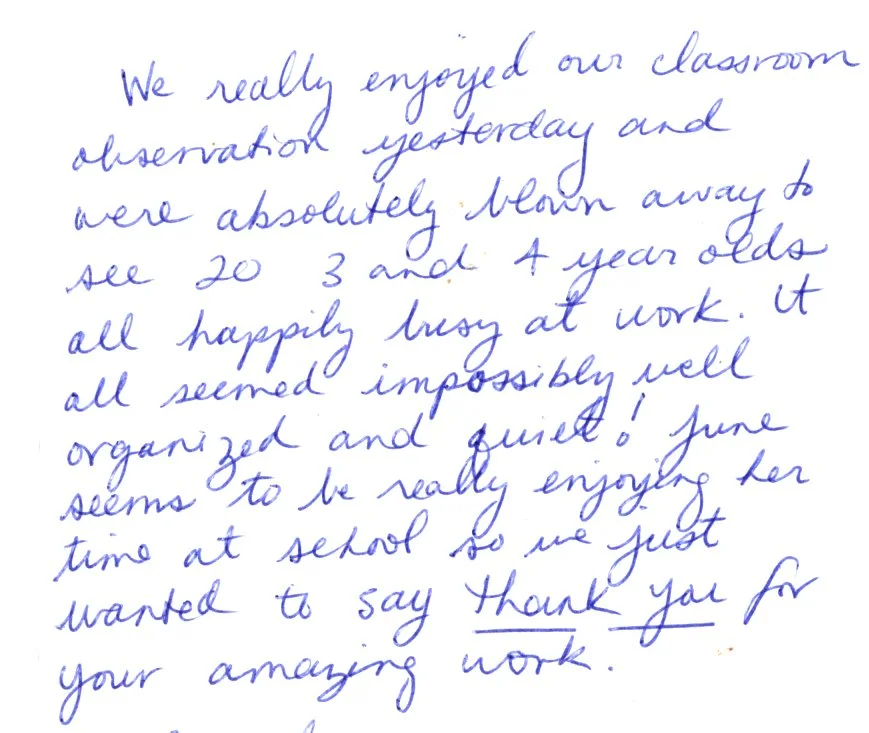 We really enjoyed our classroom
observation yesterday and
were absolutely blown away to
see 20 3 and 4 year olds
all happily busy at work. It
all seemed impossibly well
organized and quiet! June
seems to be really enjoying her
time at school so we just
wanted to say thank you for
your amazing work.